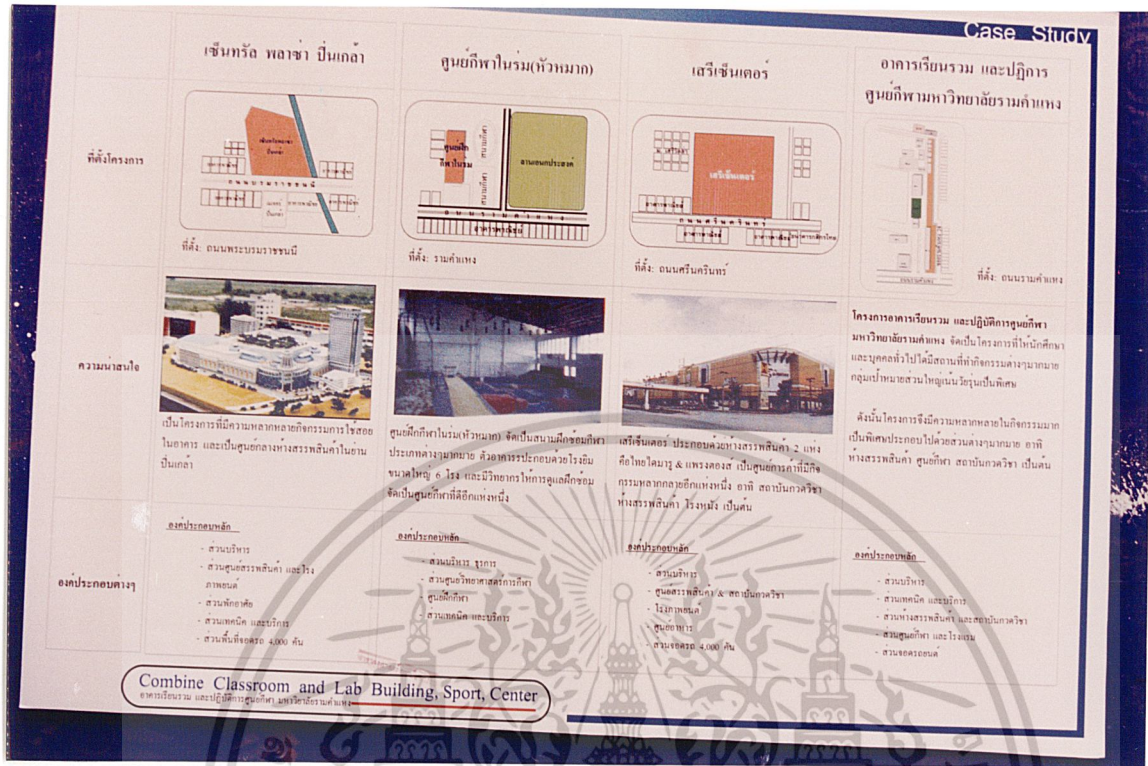 Case Study
เซ็นทรัล พลาซ่า ปิ่นเกล้า
ศูนย์กีฬาในร่ม(หัวหมาก)
เสรีเซ็นเตอร์
อาคารเรียนรวม และปฏิการ
ศูนย์กีฬามหาวิทยาลัยรามคำแหง
ที่ตั้งโครงการ
เซ็นทรัลพลาซ่า
ปิ่นเกล้า
ถนนบรมราชชนนี
ที่ตั้ง: ถนนพระบรมราชชนนี
ศูนย์ฝึก
กีฬาในร่ม
สนามกีฬา
สนามกีฬา
ลานเอนกประสงค์
ถนนรามคำแหง
อาคารพาณิชย์
ที่ตั้ง: รามคำแหง
เสรีเซ็นเตอร์
อาคารพาณิชย์
ถนนศรีนครินทร์
อาคารพาณิชย์
อาคารพาณิชย์
ที่ตั้ง: ถนนศรีนครินทร์
ถนนรามคำแหง
ที่ตั้ง: ถนนรามคำแหง
ความน่าสนใจ
เป็นโครงการที่มีความหลากหลายกิจกรรมการใช้สอย
ในอาคาร และเป็นศูนย์กลางห้างสรรพสินค้าในย่าน
ปิ่นเกล้า
ศูนย์ฝึกกีฬาในร่ม(หัวหมาก) จัดเป็นสนามฝึกซ้อมกีฬา
ประเภทต่างๆมากมาย ตัวอาคารประกอบด้วยโรงยิม
ขนาดใหญ่ 6 โรง และมีวิทยากรให้การดูแลฝึกซ้อม
จัดเป็นศูนย์กีฬาที่ดีอีกแห่งหนึ่ง
เสรีเซ็นเตอร์ ประกอบด้วยห้างสรรพสินค้า 2 แห่ง
คือไทยไดมารู & แพรงตองส์ เป็นศูนย์การค้าที่มีกิจ
กรรมหลากหลายอีกแห่งหนึ่ง อาทิ สถาบันกวดวิชา
ห้างสรรพสินค้า โรงหนัง เป็นต้น
โครงการอาคารเรียนรวม และปฏิบัติการศูนย์กีฬา
มหาวิทยาลัยรามคำแหง จัดเป็นโครงการที่ให้นักศึกษา
และบุคคลทั่วไปได้มีสถานที่ทำกิจกรรมต่างๆมากมาย
กลุ่มเป้าหมายส่วนใหญ่เน้นวัยรุ่นเป็นพิเศษ
ดังนั้นโครงการจึงมีความหลากหลายในกิจกรรมมาก
เป็นพิเศษประกอบไปด้วยส่วนต่างๆมากมาย อาทิ
ห้างสรรพสินค้า ศูนย์กีฬา สถาบันกวดวิชา เป็นต้น
องค์ประกอบต่างๆ
องค์ประกอบหลัก
- ส่วนบริหาร
- ส่วนศูนย์สรรพสินค้า และโรง
ภาพยนต์
- ส่วนพักอาศัย
- ส่วนเทคนิค และบริการ
- ส่วนพื้นที่จอดรถ 4,000 คัน
องค์ประกอบหลัก
- ส่วนบริหาร ธุรการ
- ส่วนศูนย์วิทยาศาสตร์การกีฬา
- ศูนย์ฝึกกีฬา
- ส่วนเทคนิค และบริการ
องค์ประกอบหลัก
- ส่วนบริหาร
- ศูนย์สรรพสินค้า & สถาบันกวดวิชา
- โรงภาพยนต์
- ศูนย์อาหาร
- ส่วนจอดรถ 4,000 คัน
องค์ประกอบหลัก
- ส่วนบริหาร
- ส่วนเทคนิค และบริการ
- ส่วนห้างสรรพสินค้า และสถาบันกวดวิชา
- ส่วนศูนย์กีฬา และโรงแรม
- ส่วนจอดรถยนต์
Combine Classroom and Lab Building, Sport, Center
อาคารเรียนรวม และปฏิบัติการศูนย์กีฬา มหาวิทยาลัยรามคำแหง